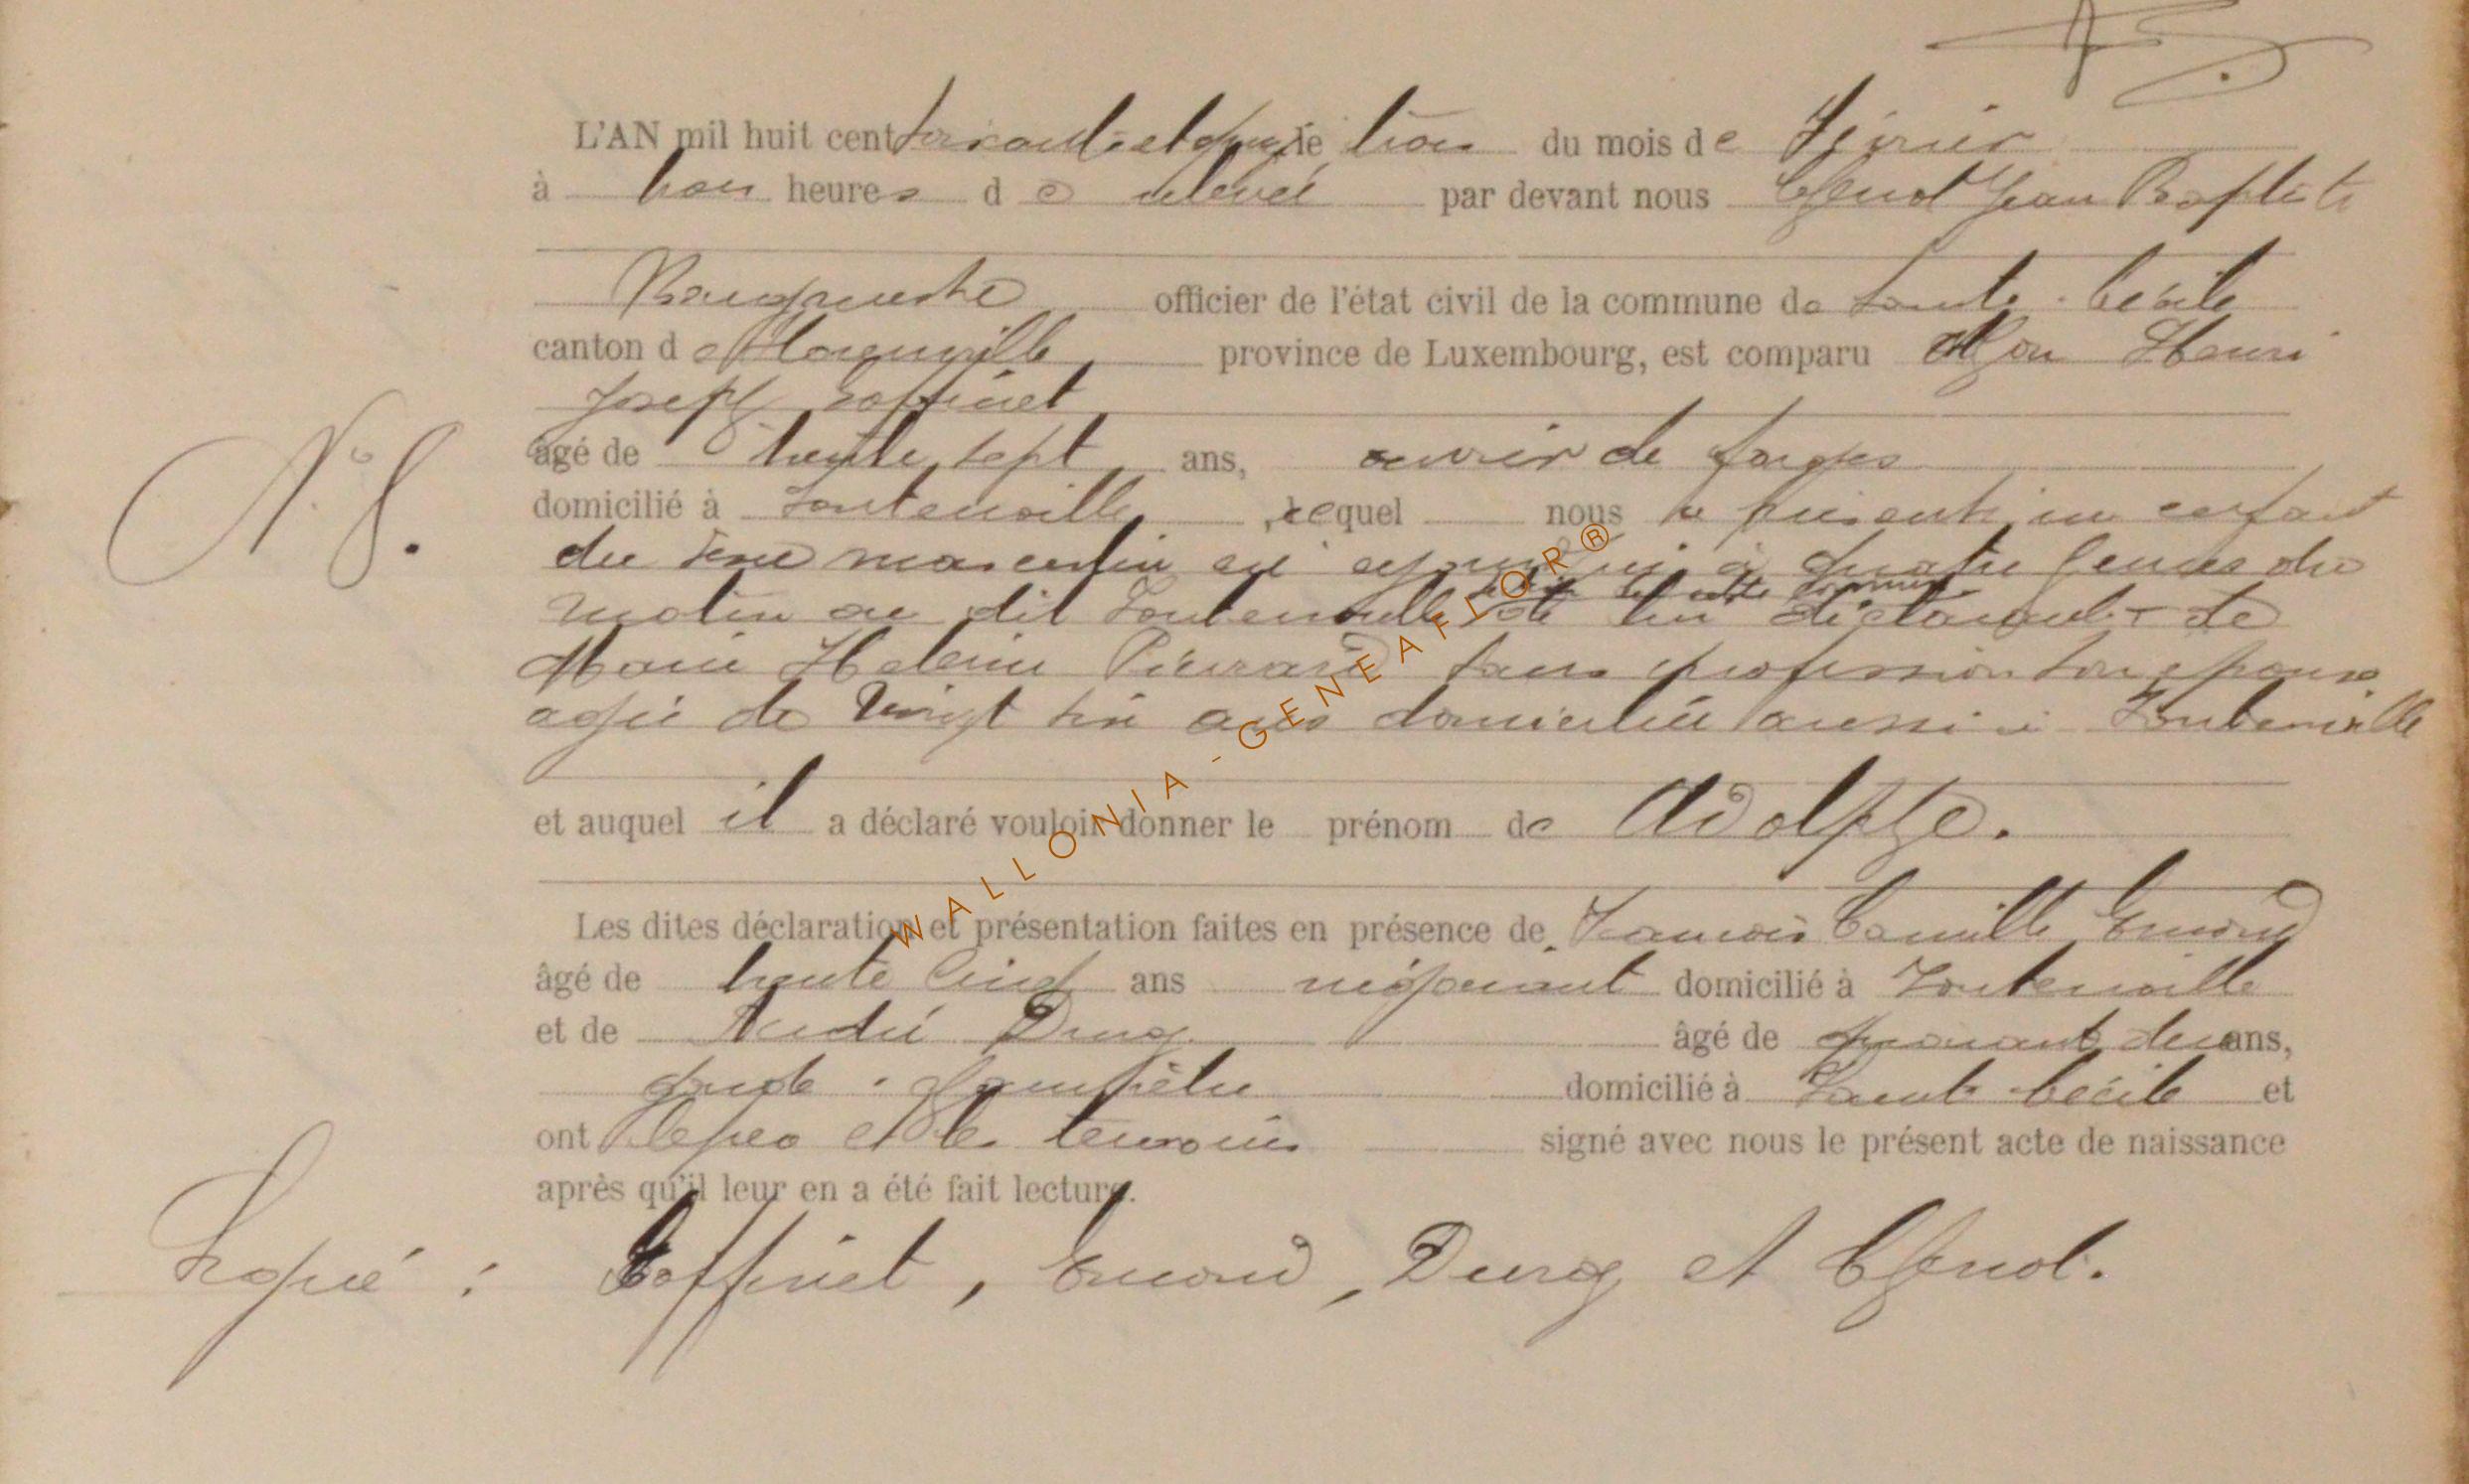 L'AN mil huit cent soixante et onze le trois du mois de Février
à trois heures de relevée par devant nous Jean Baptiste
officier de l'état civil de la commune de Sainte-Cécile
canton de Florenville province de Luxembourg, est comparu Henri
Joseph Goffinet
âgé de trente sept ans, ouvrier de forges
domicilié à Fontenoille lequel nous a présenté un enfant
du sexe masculin né à quatre heures du
matin au dit Fontenoille de lui déclarant et de
Marie Pierrard sans profession son épouse
agée de Vingt six ans domiciliée aussi à Fontenoille
et auquel il a déclaré vouloir donner le prénom de Adolphe.
Les dites déclaration et présentation faites en présence de François Camille Emond
âgé de trente cinq ans négociant domicilié à Fontenoille
et de André âgé de quarante deux ans,
garde-champêtre domicilié à Sainte Cécile et
ont le père et les témoins signé avec nous le présent acte de naissance
après qu'il leur en a été fait lecture.
Goffinet, Emond, et
N° 8.
WALLONIA-GENEAFLOR®